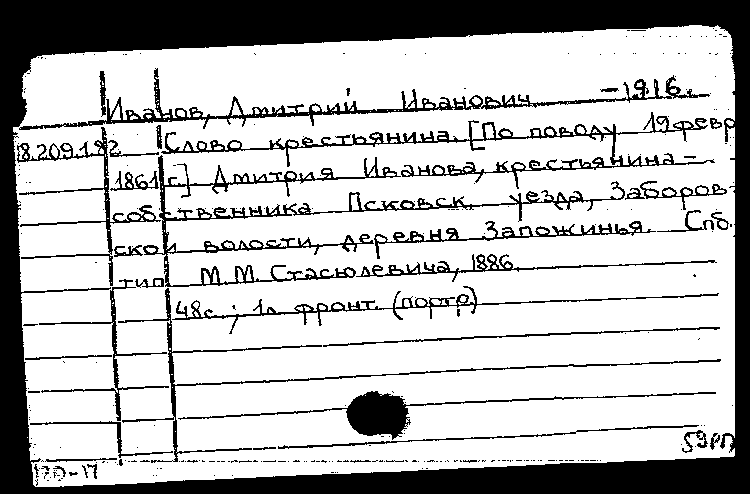 Иванов, Дмитрий Иванович -1916.
18.209.1.82 Слово крестьянина. [По поводу 19 февр
1861 г.] Дмитрия Иванова, крестьянина-
собственника Псковск. уезда, Заборов-
ской волости, деревня Запожинья. Спб.
тип М.М. Стасюлевича, 1886.
48с.; 1л. фронт. (портр)
59РП
120-17